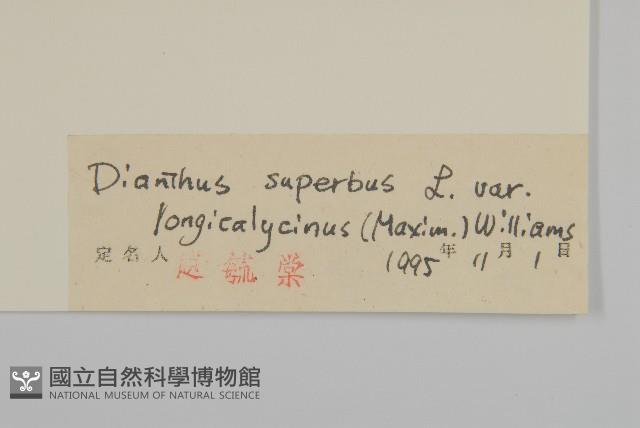 Dianthus superbus L. var.
longicalycinus (Maxim.) Williams
定名人 趙毓棠 1995年 11月 1日
國立自然科學博物館
NATIONAL MUSEUM OF NATURAL SCIENCE